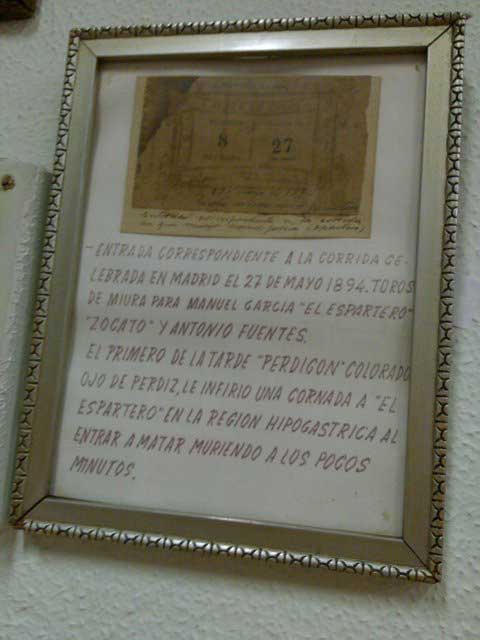 8 27
- ENTRADA CORRESPONDIENTE A LA CORRIDA CE-
LEBRADA EN MADRID EL 27 DE MAYO 1894. TOROS
DE MIURA PARA MANUEL GARCIA "EL ESPARTERO"
"ZOCATO" Y ANTONIO FUENTES.
EL PRIMERO DE LA TARDE "PERDIGON" COLORADO
OJO DE PERDIZ, LE INFIRIO UNA CORNADA A "EL
ESPARTERO" EN LA REGION HIPOGASTRICA AL
ENTRAR A MATAR MURIENDO A LOS POCOS
MINUTOS.